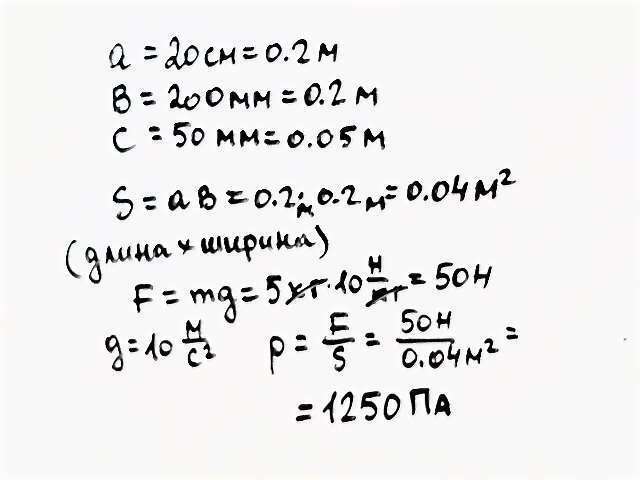 a = 20 см = 0.2 м
в = 200 мм = 0.2 м
с = 50 мм = 0.05 м
S = a в = 0.2 м · 0.2 м = 0.04 м²
(длина × ширина)
F = mg = 5 кг · 10 Н/кг = 50 Н
g = 10 м/с² p = F/S = 50 Н/0.04 м² =
= 1250 ПА